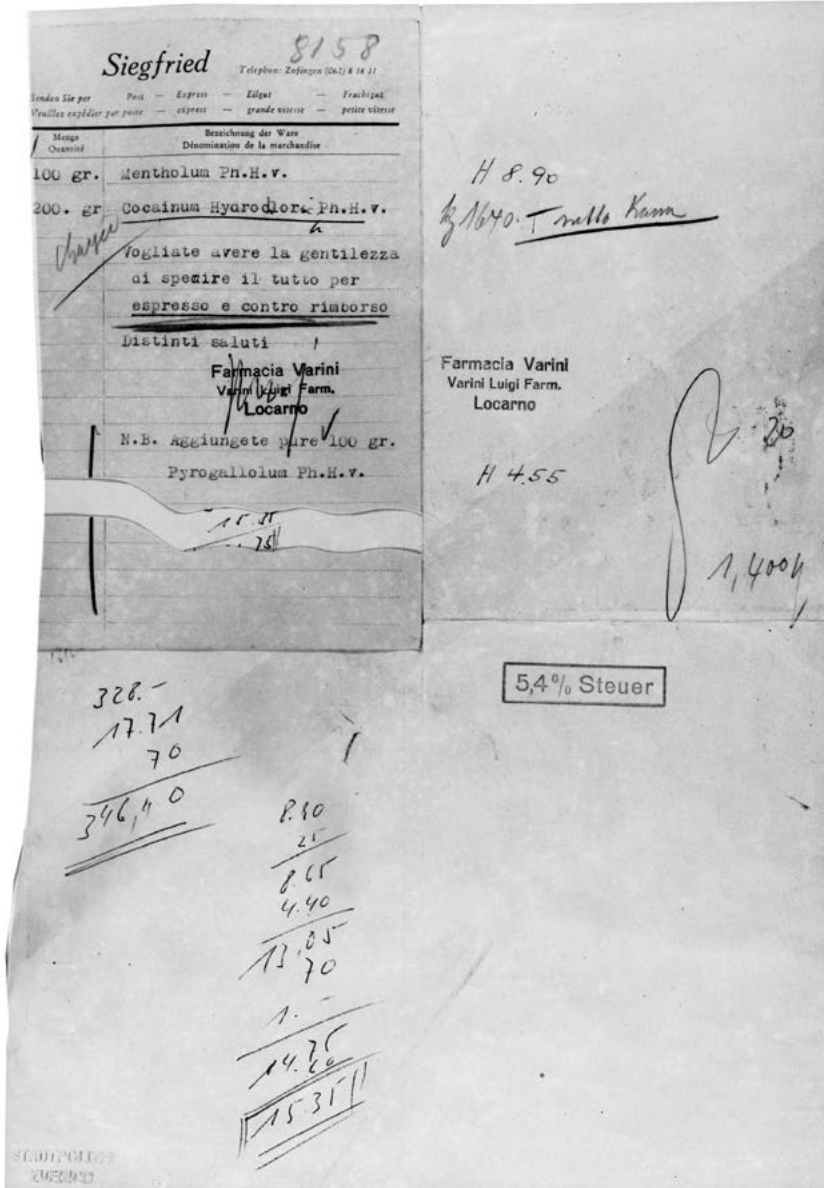 8158
Siegfried
Telephon: Zofingen (062) 8 18 11
Senden Sie per Post — Express — Eilgut — Frachtgut
Veuillez expédier par poste — express — grande vitesse — petite vitesse
Menge
Quantité
Bezeichnung der Ware
Dénomination de la marchandise
100 gr. Mentholum Ph.H.v.
200. gr Cocainum Hydrochlor. Ph.H.v.
Vogliate avere la gentilezza
di spedire il tutto per
espresso e contro rimborso
Distinti saluti
Farmacia Varini
Varini Luigi Farm.
Locarno
N.B. Aggiungete pure 100 gr.
Pyrogallolum Ph.H.v.
15.35
H 8.90
kg 1640.-
Farmacia Varini
Varini Luigi Farm.
Locarno
20
H 4.55
1,400
5,4% Steuer
328.-
17.71
70
346,40
8.40
25
8.65
4.40
13,05
70
1.-
14.75
60
15.35
STADTPOLIZEI
ZUERICH